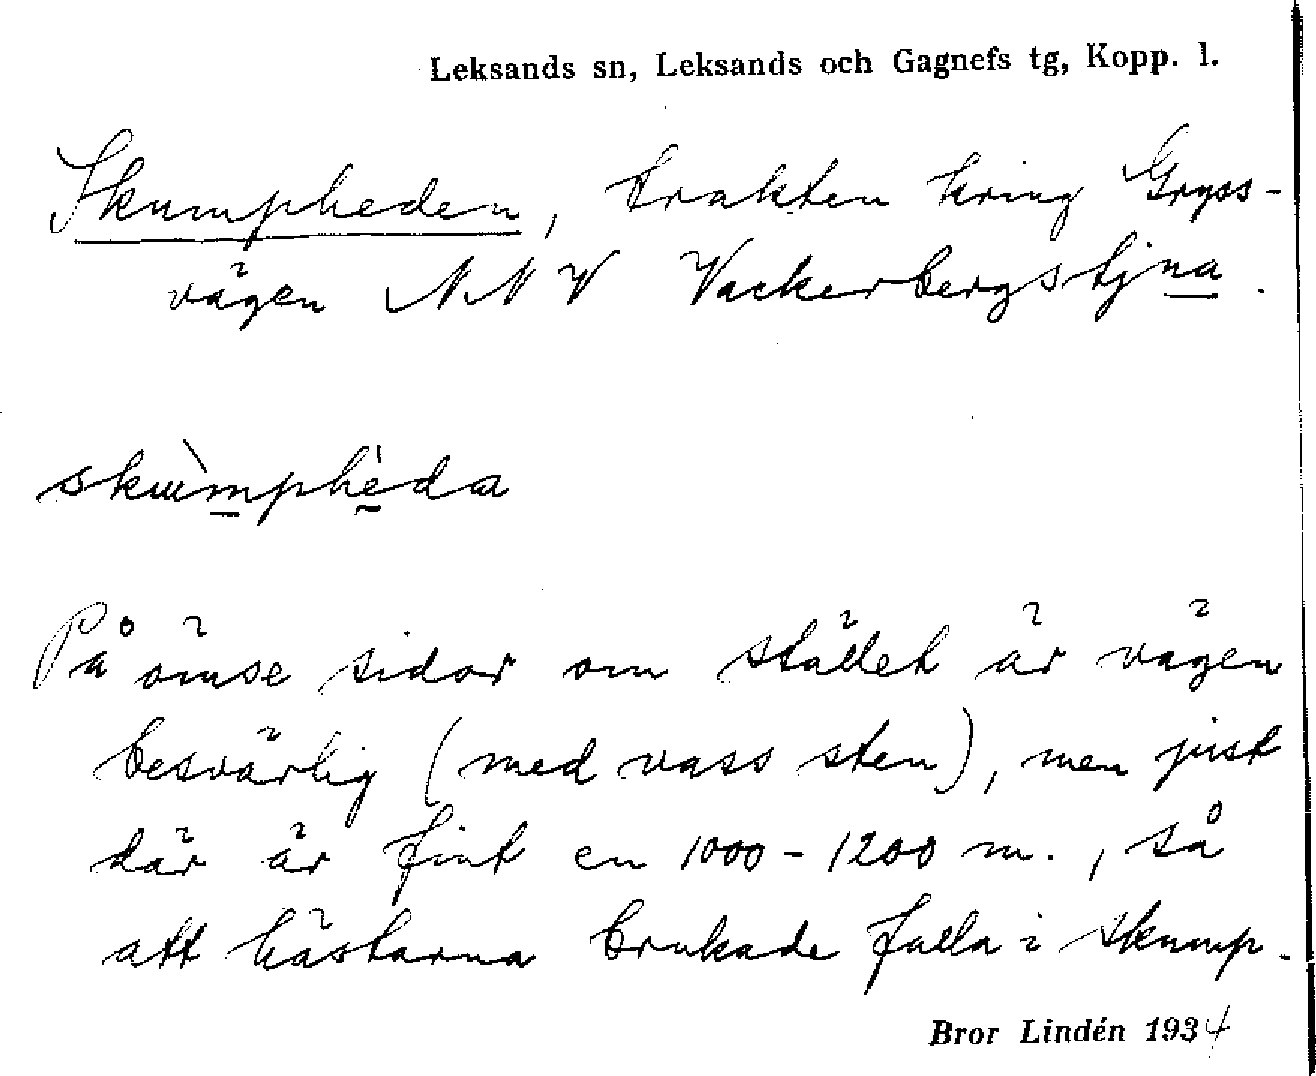 Leksands sn, Leksands och Gagnefs tg, Kopp. l.
Skumpheden, trakten kring Gryss-
vägen NNV Vackerbergstjna.
skùmphèda
På ömse sidor om stället är vägen
besvärlig (med vass sten), men just
där är fint en 1000-1200 m., så
att hästarna brukade falla i skump.
Bror Lindén 1934